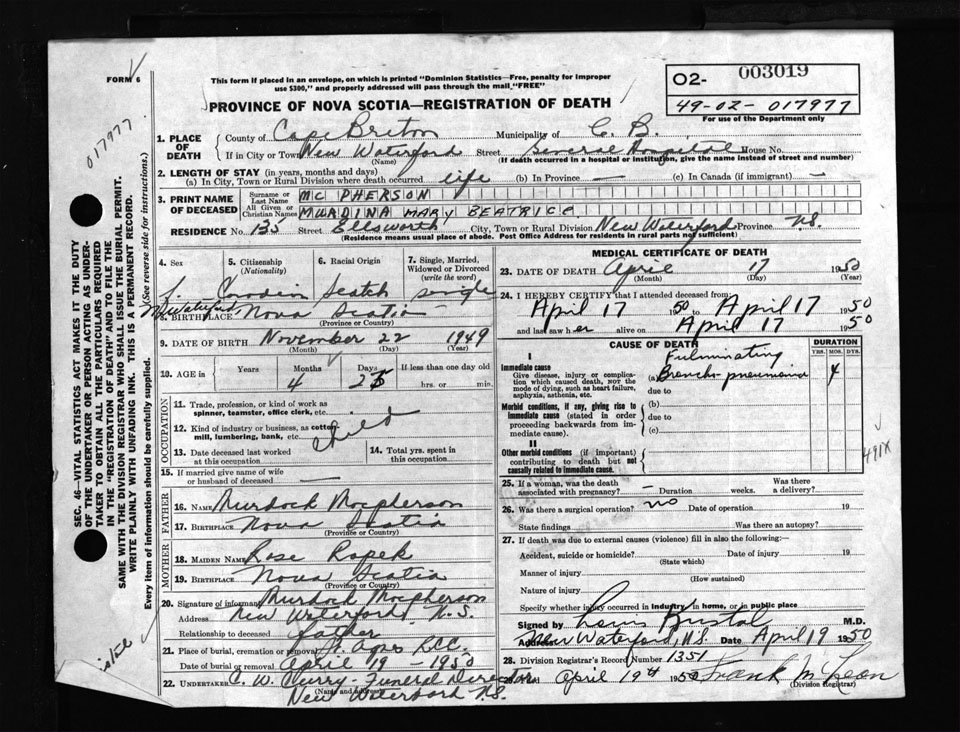 FORM 6
This form if placed in an envelope, on which is printed "Dominion Statistics—Free, penalty for improper
use $300," and properly addressed will pass through the mail "FREE"
O2- 003019
PROVINCE OF NOVA SCOTIA—REGISTRATION OF DEATH
49-02-017977
For use of the Department only
017977
1. PLACE OF DEATH
County of Cape Breton Municipality of C. B.
If in City or Town New Waterford Street General Hospital House No.
(Name) (If death occurred in a hospital or institution, give the name instead of street and number)
2. LENGTH OF STAY (in years, months and days)
(a) In City, Town or Rural Division where death occurred life (b) In Province — (c) In Canada (if immigrant) —
3. PRINT NAME OF DECEASED
Surname or Last Name MC PHERSON
All Given or Christian Names MWADINA MARY BEATRICE
RESIDENCE No. 135 Street Ellsworth City, Town or Rural Division New Waterford Province N.S.
(Residence means usual place of abode. Post Office Address for residents in rural parts not sufficient)
4. Sex
5. Citizenship (Nationality)
6. Racial Origin
7. Single, Married, Widowed or Divorced (write the word)
Scotch single
8. BIRTHPLACE Nova Scotia
(Province or Country)
9. DATE OF BIRTH November 22 1949
(Month) (Day) (Year)
10. AGE in Years Months Days If less than one day old
4 25 hrs. or min.
OCCUPATION
11. Trade, profession, or kind of work as
spinner, teamster, office clerk, etc.
12. Kind of industry or business, as cotton
mill, lumbering, bank, etc. child
13. Date deceased last worked at this occupation
14. Total yrs. spent in this occupation
15. If married give name of wife
or husband of deceased —
FATHER
16. NAME Murdoch Macpherson
17. BIRTHPLACE Nova Scotia
(Province or Country)
MOTHER
18. MAIDEN NAME Rose Ropek
19. BIRTHPLACE Nova Scotia
(Province or Country)
20. Signature of informant Murdoch Macpherson
Address New Waterford, N.S.
Relationship to deceased father
21. Place of burial, cremation or removal
Date of burial or removal April 19 - 1950
22. UNDERTAKER C. W. Curry - Funeral Director
(Name and address)
New Waterford N.S.
MEDICAL CERTIFICATE OF DEATH
23. DATE OF DEATH April 17 1950
(Month) (Day)
24. I HEREBY CERTIFY that I attended deceased from:
April 17 1950 to April 17 1950
and last saw her alive on April 17 1950
CAUSE OF DEATH
DURATION
YRS. MOS. DYS.
I
Immediate cause
Give disease, injury or complication which caused death, NOT the mode of dying, such as heart failure, asphyxia, asthenia, etc.
Fulminating
(a) Broncho-pneumonia 4
due to
Morbid conditions, if any, giving rise to immediate cause (stated in order proceeding backwards from immediate cause).
(b)
due to
(c)
II
Other morbid conditions (if important) contributing to death but not causally related to immediate cause.
491X
25. If a woman, was the death
associated with pregnancy? — Duration weeks. Was there a delivery?
26. Was there a surgical operation? no Date of operation 19
State findings Was there an autopsy?
27. If death was due to external causes (violence) fill in also the following:
Accident, suicide or homicide? Date of injury 19
(State which)
Manner of injury
(How sustained)
Nature of injury
Specify whether injury occurred in industry, in home, or in public place
Signed by Louis Bristol M.D.
Address New Waterford, N.S. Date April 19 1950
28. Division Registrar's Record Number 1351
April 19th 1950 Frank McLean
(Division Registrar)
SEC. 46—VITAL STATISTICS ACT MAKES IT THE DUTY
OF THE UNDERTAKER OR PERSON ACTING AS UNDERTAKER TO OBTAIN ALL THE PARTICULARS REQUIRED
IN THE "REGISTRATION OF DEATH" AND TO FILE THE
SAME WITH THE DIVISION REGISTRAR WHO SHALL ISSUE THE BURIAL PERMIT.
WRITE PLAINLY WITH UNFADING INK. THIS IS A PERMANENT RECORD.
Every item of information should be carefully supplied. (See reverse side for instructions.)